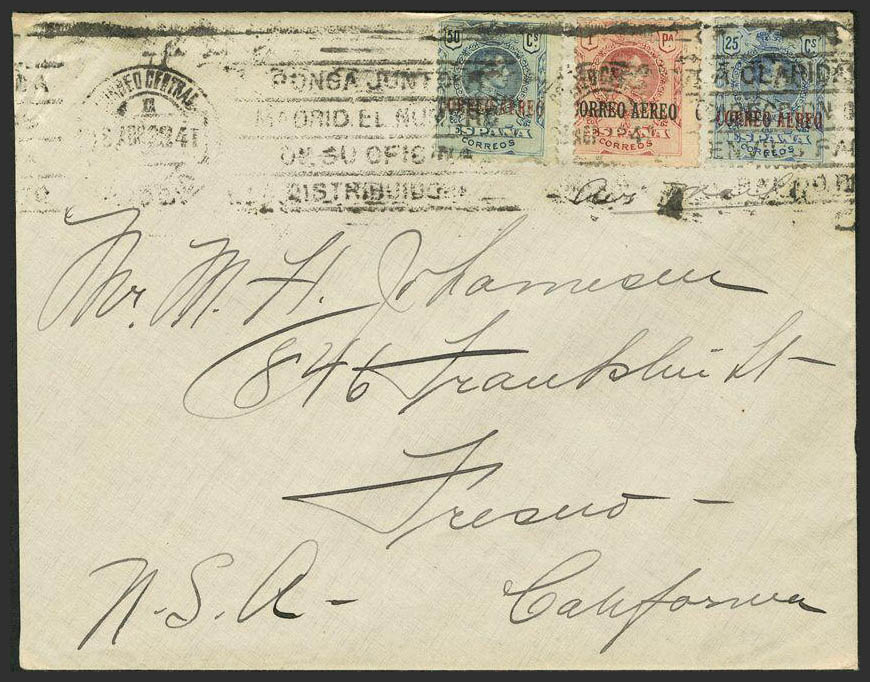 50 Cs
CORREO AEREO
ESPAÑA
CORREOS
1 PTA
CORREO AEREO
ESPAÑA
CORREOS
25 Cs
CORREO AEREO
ESPAÑA
CORREOS
CORREO CENTRAL
PONGA JUNTO A
MADRID EL NUMERO
DE SU OFICINA
DISTRIBUIDORA
Mr. M. H. Johannesen
846 Franklin St -
Fresno -
U.S.A - California